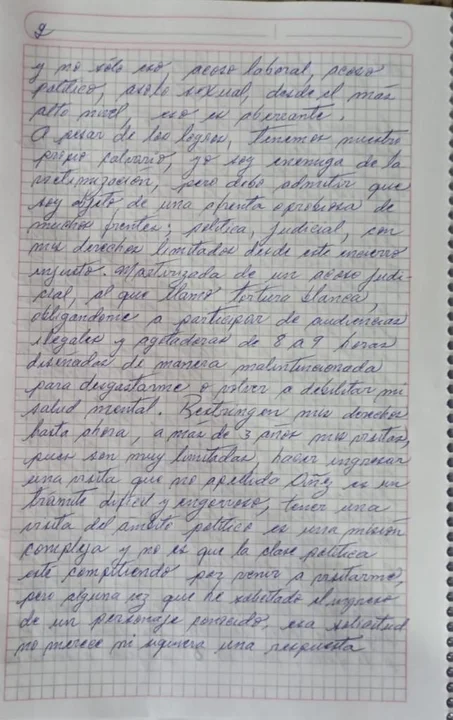 9
y no sólo eso, acoso laboral, acoso
político, acoso sexual, desde el más
alto nivel, eso es aberrante.
A pesar de los logros, tenemos nuestro
propio calvario, yo soy enemiga de la
victimización, pero debo admitir que
soy objeto de una afrenta oprobiosa de
muchos frentes; política, judicial, con
mis derechos limitados desde este encierro
injusto. Martirizada de un acoso judi-
cial, al que llamo tortura blanca,
obligandome a participar de audiencias
ilegales y agotadoras de 8 a 9 horas
diseñadas de manera malintencionada
para desgastarme o volver a debilitar mi
salud mental. Restringen mis derechos
hasta ahora, a más de 3 años mis visitas,
pues son muy limitadas, hacer ingresar
una visita que no apellida Añez es un
trámite difícil y engorroso, tener una
visita del ámbito político es una misión
compleja y no es que la clase política
esté compitiendo por venir a visitarme,
pero alguna vez que he solicitado el ingreso
de un personaje conocido, esa solicitud
no merece ni siquiera una respuesta